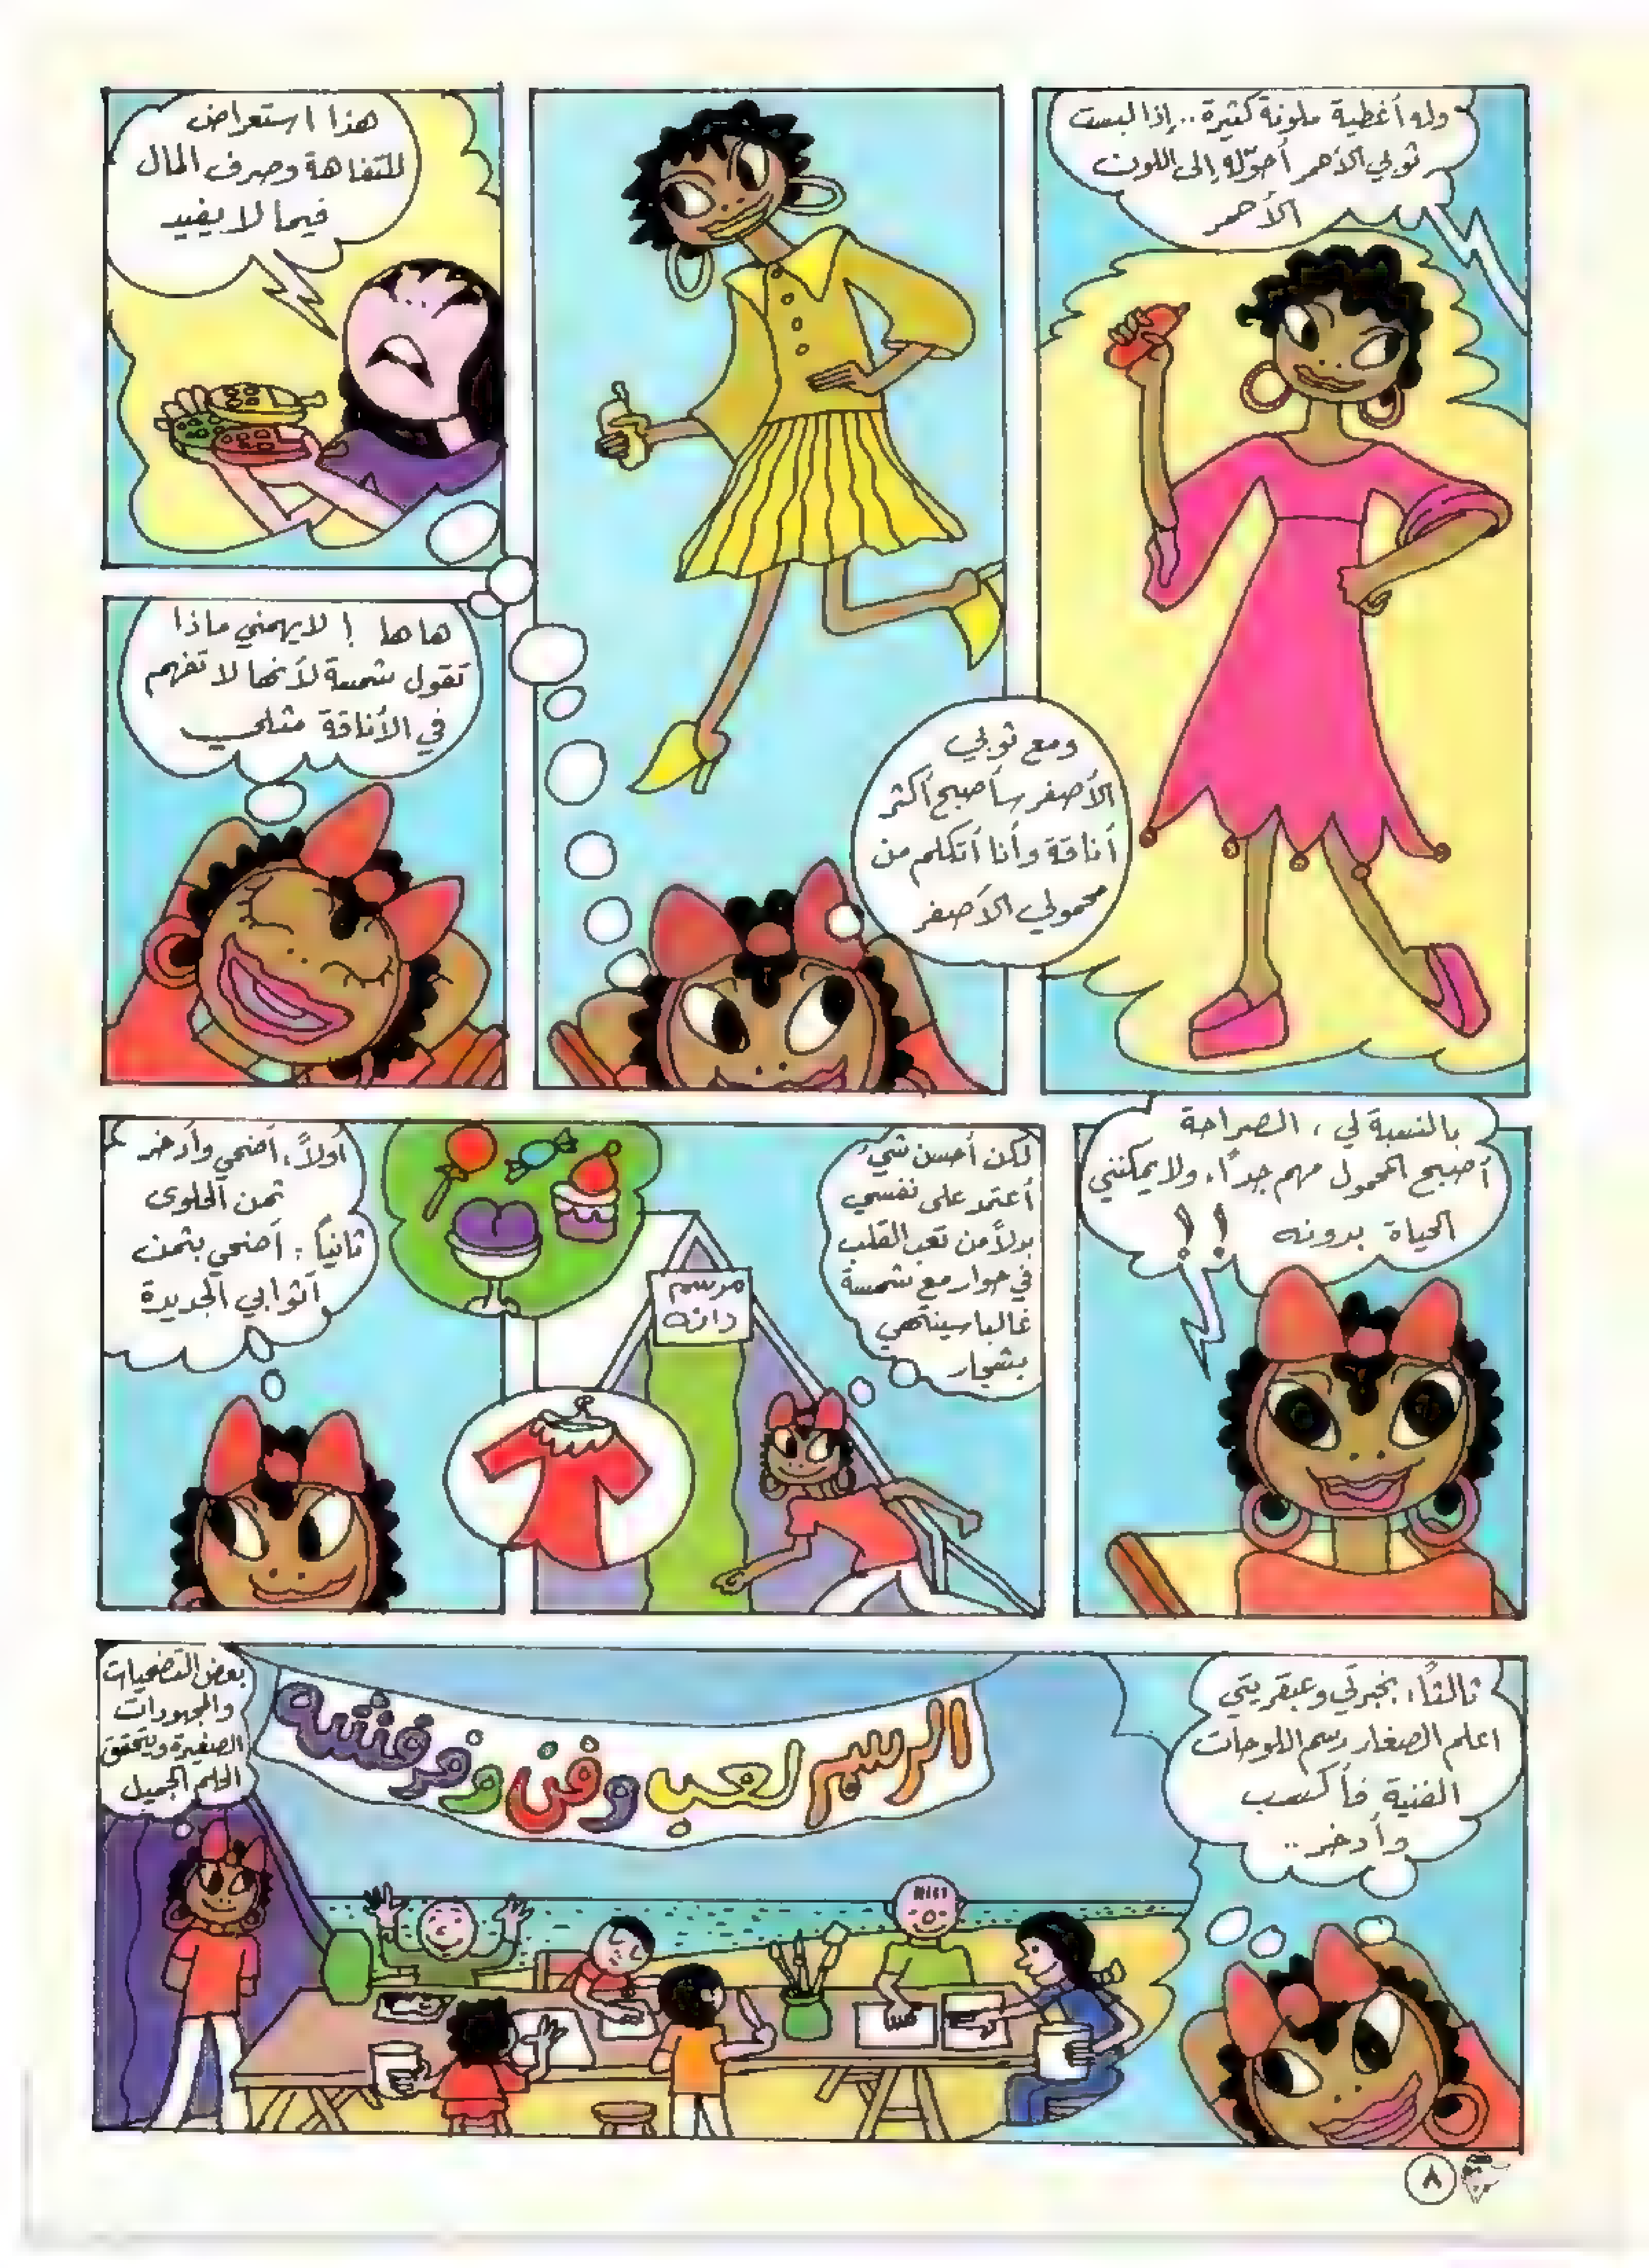 وله أغطية ملونة كثيرة.. إذا لبست
ثوبي الأحمر أحوّله إلى اللون
الأحمر
ومع ثوبي
الأصفر سأصبح أكثر
أناقة وأنا أتكلم من
محمولي الأصفر
هذا استعراض
للتفاهة وصرف المال
فيما لا يفيد
ها ها ! لا يهمني ماذا
تقول شمسة لأنها لا تفهم
في الأناقة مثلي
بالنسبة لي ، الصراحة
أصبح المحمول مهم جداً، ولا يمكنني
الحياة بدونه !!
لكن أحسن شيء
أعتمد على نفسي
بدلاً من تعب القلب
في حوار مع شمسة
غالبا سينتهي
بشجار
مرسم
دانه
أولاً: أضحي وأدخر
ثمن الحلوى
ثانياً: أضحي بثمن
أثوابي الجديدة
ثالثاً: بخبرتي وعبقريتي
اعلم الصغار رسم اللوحات
الفنية فأكسب
وأدخر ..
الرسم لعب وفن وفرفشه
بعض التضحيات
والمجهودات
الصغيرة ويتحقق
الحلم الجميل
٨